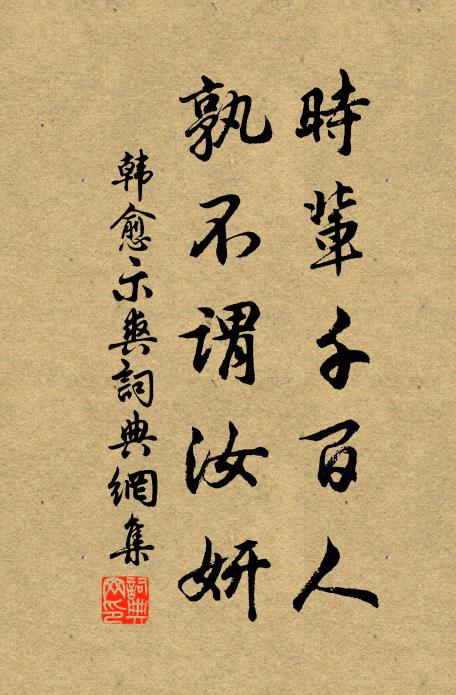 時輩千百人
孰不謂汝妍
韩愈示爽詞典網集
詞典網印